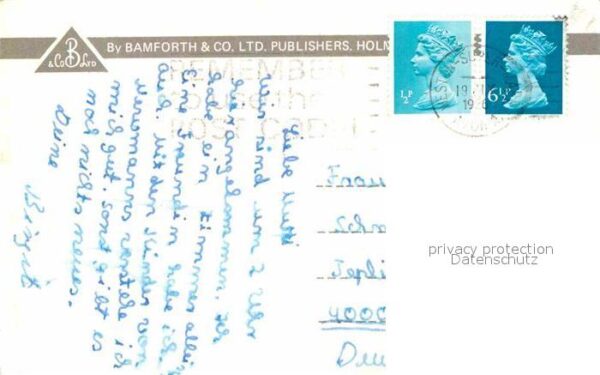 By BAMFORTH & CO. LTD. PUBLISHERS. HOLM
B
& Co LTD
REMEMBER
the
POST CODE
½P
6½P
19
19
Liebe Mutti
Wir sind um 2 Uhr
hier angekommen. Ich
habe ein Zimmer allein
Eine Freundin habe ich
auch. Mit den Kinder von
verstehe ich
mich gut. Sonst gibt es
noch nichts neues.
Deine Birgit
Frau
Sch
Tepli
4000
Deu
privacy protection
Datenschutz